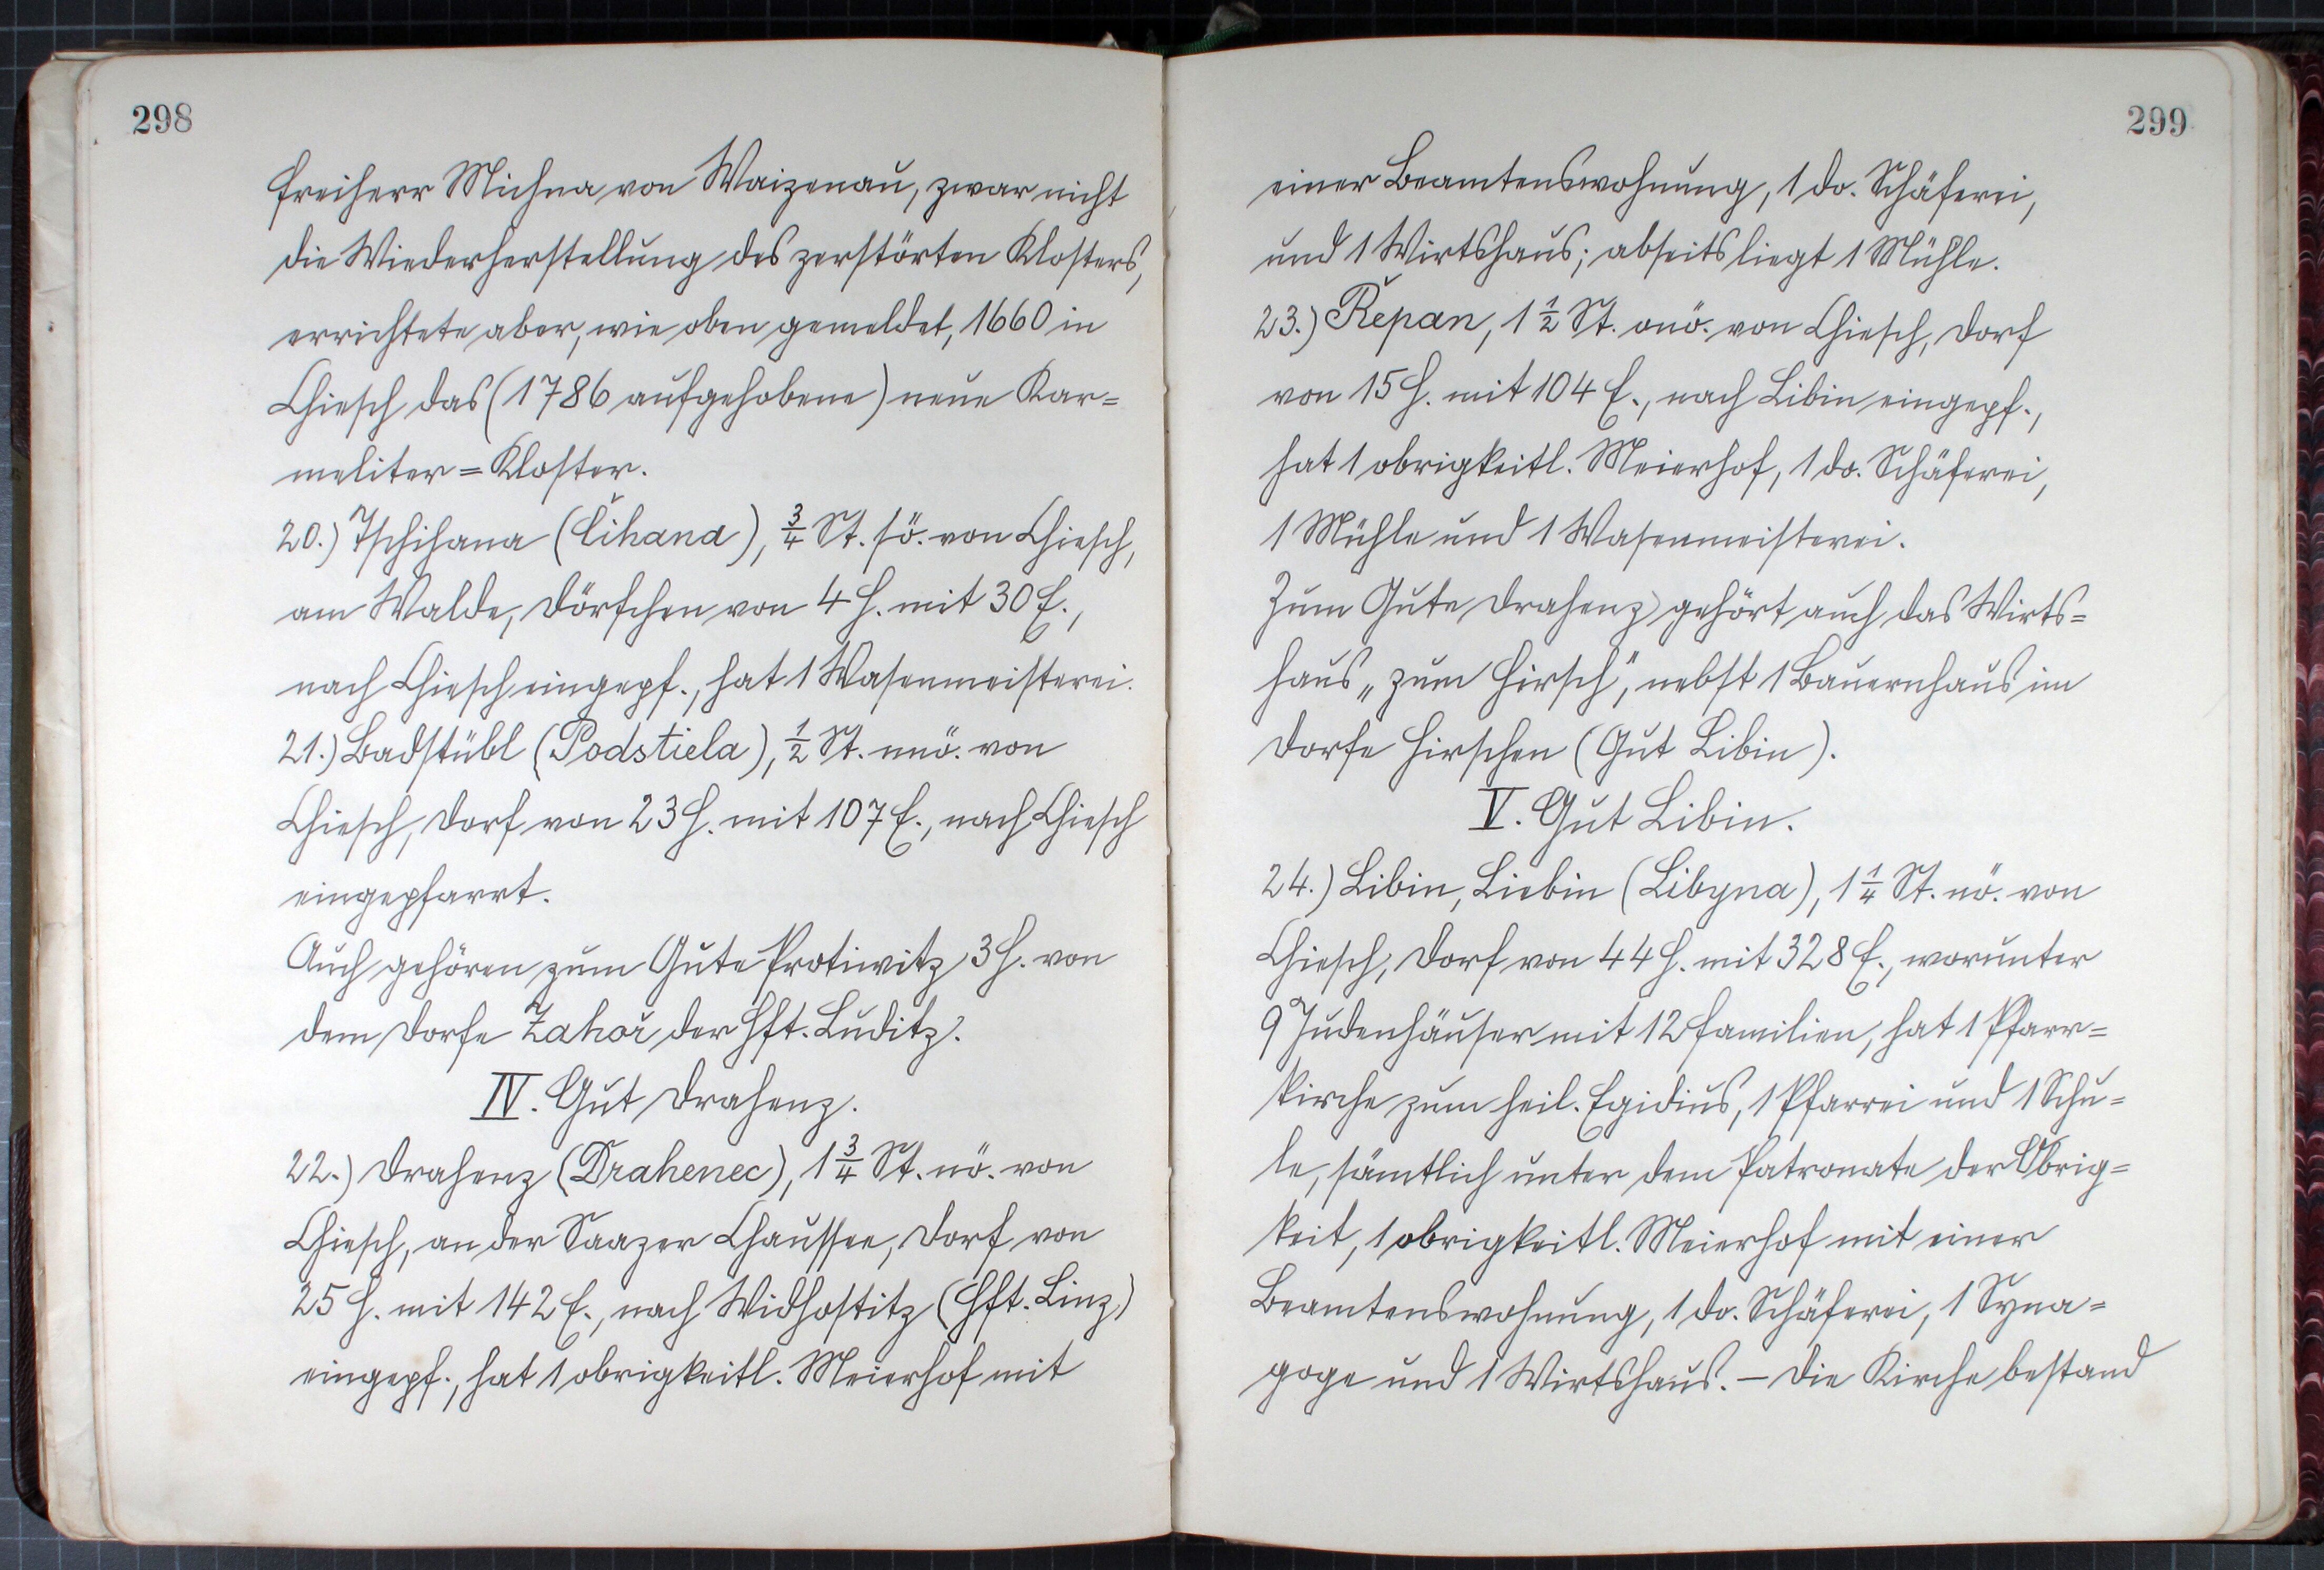 298
Freiherr Michna von Waizenau, zwar nicht
die Wiederherstellung des zerstörten Klosters,
errichtete aber, wie oben gemeldet, 1660 in
Chiesch das (1786 aufgehobene) neue Kar=
meliter=Kloster.
20.) Tschihana (Čihana), 3/4 St. sö. von Chiesch,
am Walde, Dörfchen von 4 H. mit 30 E.,
nach Chiesch eingepf., hat 1 Wasenmeisterei.
21.) Badstübl (Podstiela), 1/2 St. nnö. von
Chiesch, Dorf von 23 H. mit 107 E., nach Chiesch
eingepfarrt.
Auch gehören zum Gute Protiwitz 3 H. von
dem Dorfe Zahoř der Hft. Luditz.
IV. Gut Drahenz.
22.) Drahenz (Drahenec), 1 3/4 St. nö. von
Chiesch, an der Saazer Chaussee, Dorf von
25 H. mit 142 E., nach Widhostitz (Hft. Linz)
eingepf., hat 1 obrigkeitl. Meierhof mit
299
einer Beamtenswohnung, 1 do. Schäferei,
und 1 Wirtshaus; abseits liegt 1 Mühle.
23.) Řepan, 1 1/2 St. onö. von Chiesch, Dorf
von 15 H. mit 104 E., nach Libin eingepf.,
hat 1 obrigkeitl. Meierhof, 1 do. Schäferei,
1 Mühle und 1 Wasenmeisterei.
Zum Gute Drahenz gehört auch das Wirts=
haus „zum Hirsch“, nebst 1 Bauernhaus im
Dorfe Hirschen (Gut Libin).
V. Gut Libin.
24.) Libin, Liebin (Libyna), 1 1/4 St. nö. von
Chiesch, Dorf von 44 H. mit 328 E., worunter
9 Judenhäuser mit 12 Familien, hat 1 Pfarr=
kirche zum heil. Egidius, 1 Pfarrei und 1 Schu=
le, sämtlich unter dem Patronate der Obrig=
keit, 1 obrigkeitl. Meierhof mit einer
Beamtenswohnung, 1 do. Schäferei, 1 Syna=
goge und 1 Wirtshaus. – Die Kirche bestand